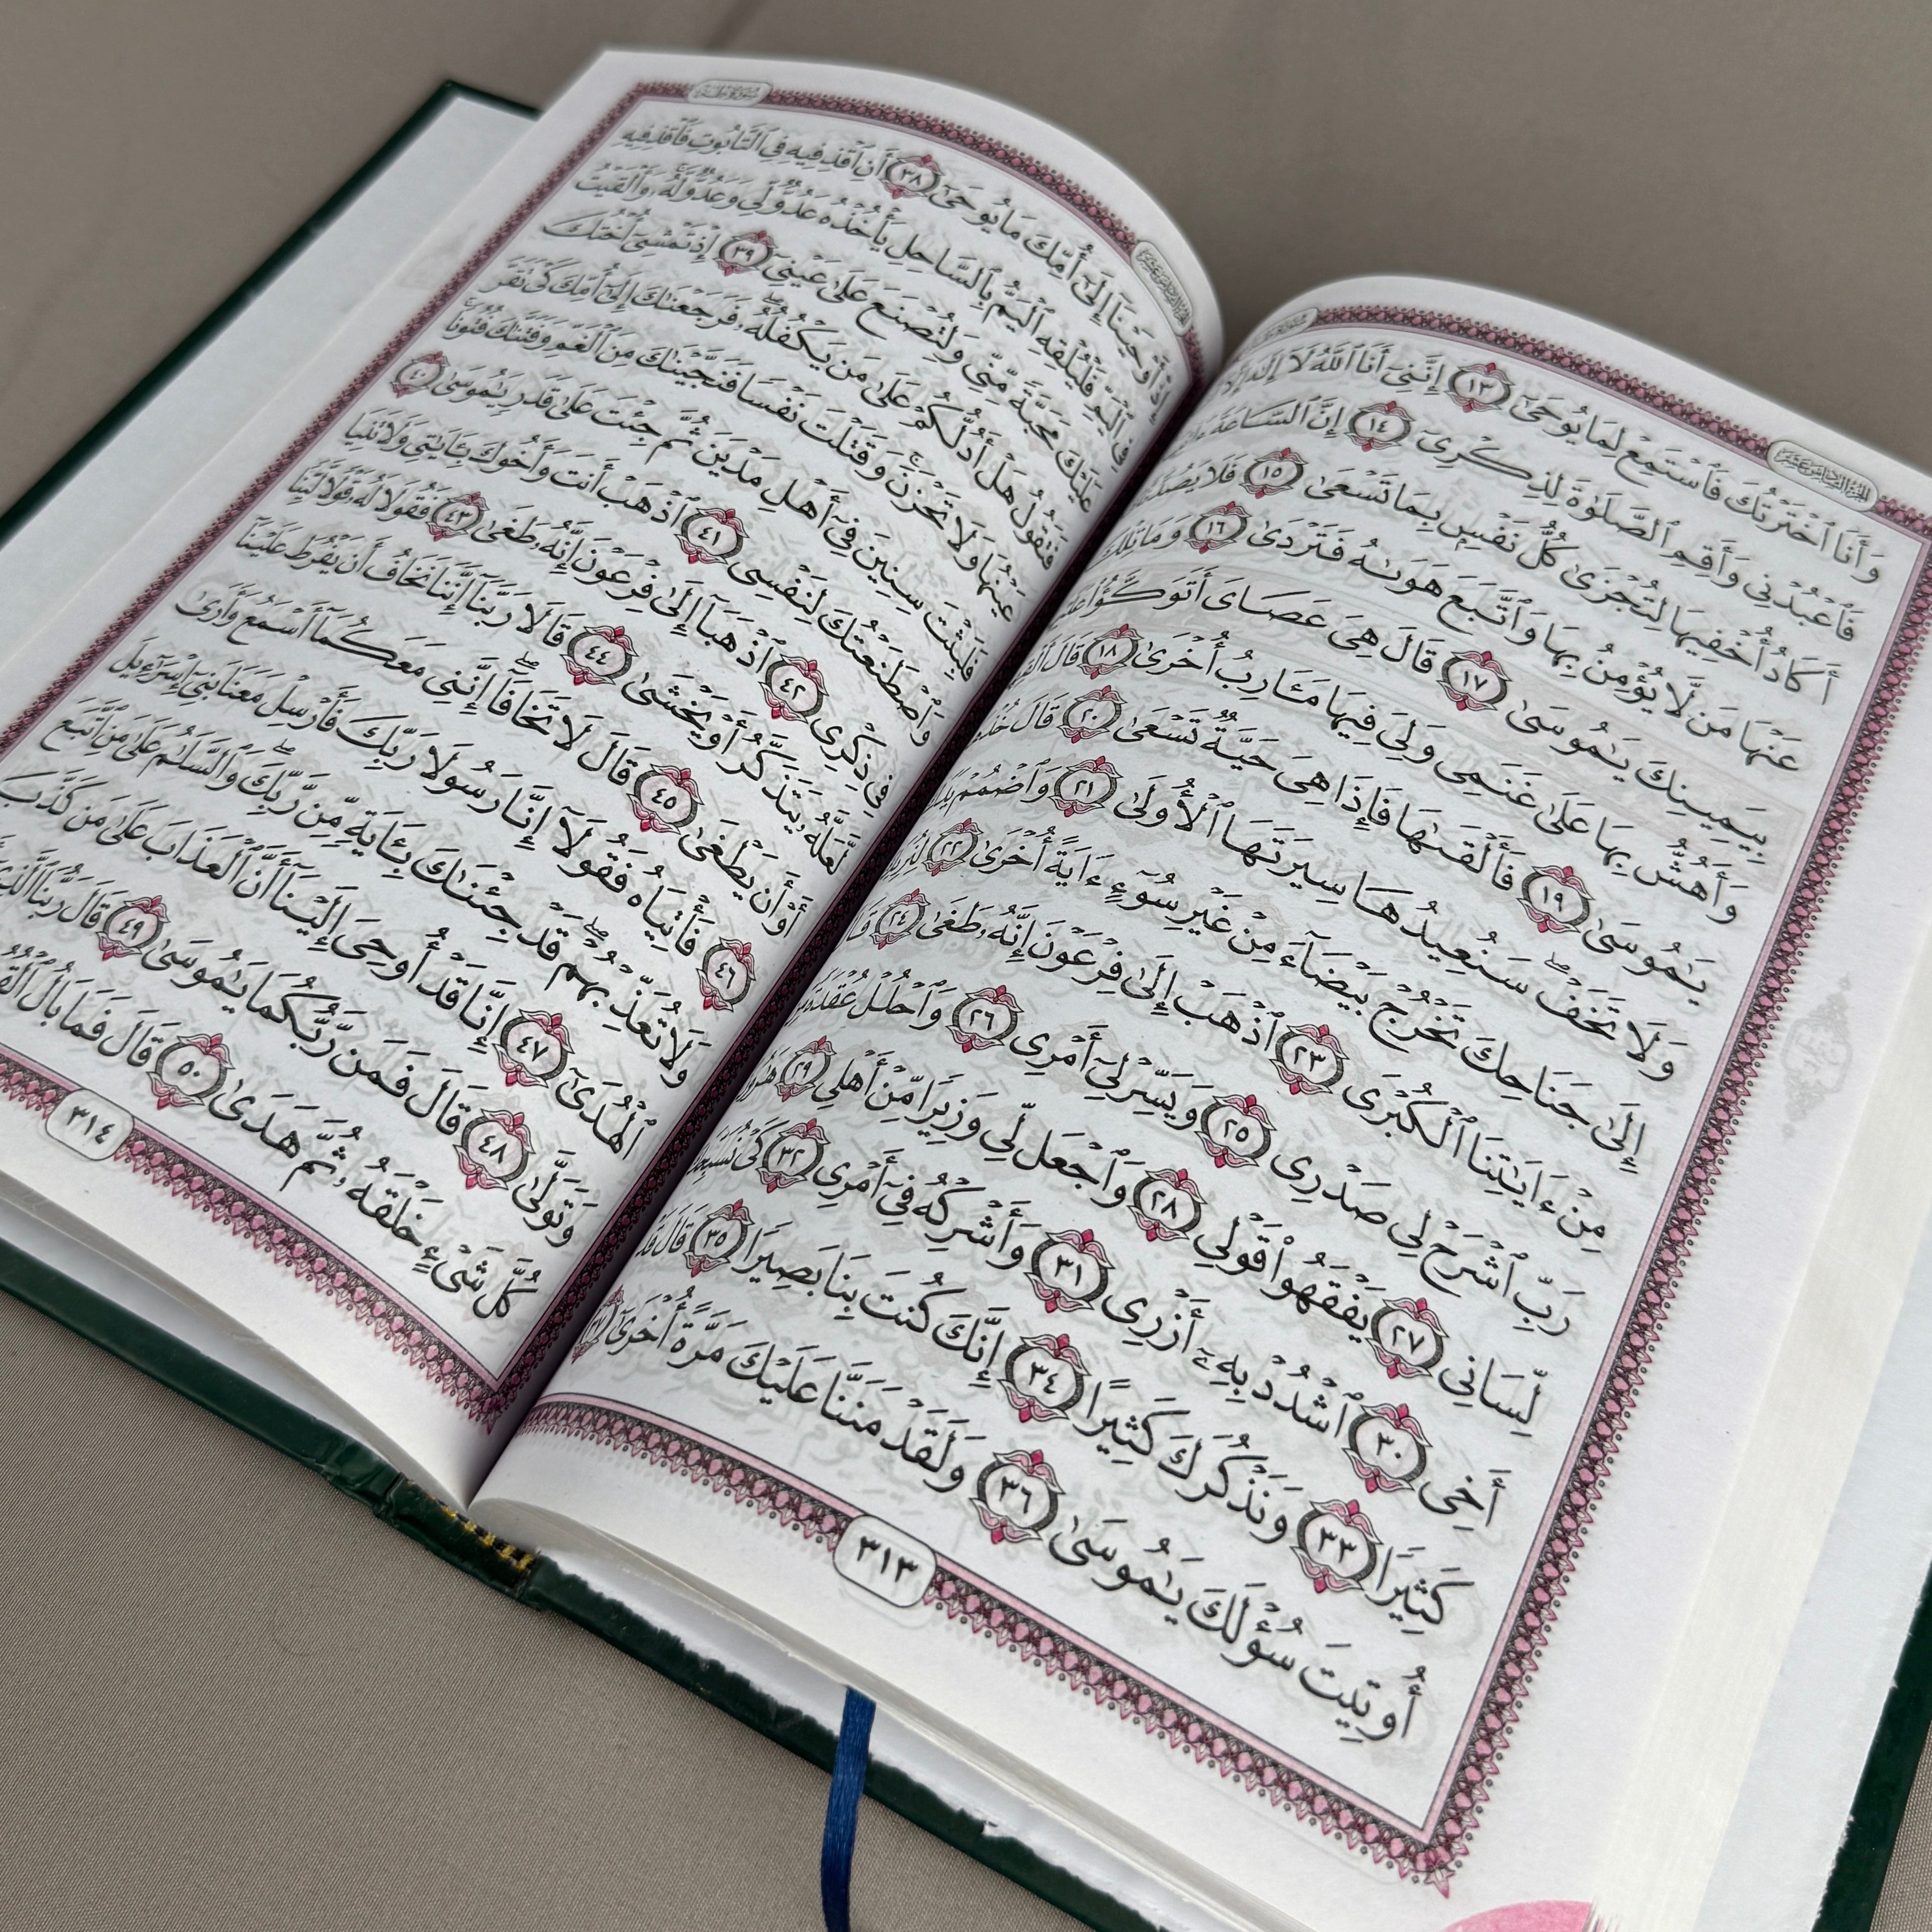 الجزء السادس عشر
وَأَنَا ٱخْتَرْتُكَ فَٱسْتَمِعْ لِمَا يُوحَىٰٓ ١٣ إِنَّنِىٓ أَنَا ٱللَّهُ لَآ إِلَٰهَ إِلَّآ
فَٱعْبُدْنِى وَأَقِمِ ٱلصَّلَوٰةَ لِذِكْرِىٓ ١٤ إِنَّ ٱلسَّاعَةَ
أَكَادُ أُخْفِيهَا لِتُجْزَىٰ كُلُّ نَفْسٍۭ بِمَا تَسْعَىٰ ١٥ فَلَا
عَنْهَا مَن لَّا يُؤْمِنُ بِهَا وَٱتَّبَعَ هَوَىٰهُ فَتَرْدَىٰ ١٦ وَمَا تِلْكَ
بِيَمِينِكَ يَٰمُوسَىٰ ١٧ قَالَ هِىَ عَصَاىَ أَتَوَكَّؤُا۟
وَأَهُشُّ بِهَا عَلَىٰ غَنَمِى وَلِىَ فِيهَا مَـَٔارِبُ أُخْرَىٰ ١٨ قَالَ
يَٰمُوسَىٰ ١٩ فَأَلْقَىٰهَا فَإِذَا هِىَ حَيَّةٌ تَسْعَىٰ ٢٠ قَالَ
وَلَا تَخَفْ ۖ سَنُعِيدُهَا سِيرَتَهَا ٱلْأُولَىٰ ٢١ وَٱضْمُمْ
إِلَىٰ جَنَاحِكَ تَخْرُجْ بَيْضَآءَ مِنْ غَيْرِ سُوٓءٍ ءَايَةً أُخْرَىٰ ٢٢
مِنْ ءَايَٰتِنَا ٱلْكُبْرَى ٢٣ ٱذْهَبْ إِلَىٰ فِرْعَوْنَ إِنَّهُۥ طَغَىٰ ٢٤
رَبِّ ٱشْرَحْ لِى صَدْرِى ٢٥ وَيَسِّرْ لِىٓ أَمْرِى ٢٦ وَٱحْلُلْ
لِّسَانِى ٢٧ يَفْقَهُوا۟ قَوْلِى ٢٨ وَٱجْعَل لِّى وَزِيرًا مِّنْ أَهْلِى ٢٩
أَخِى ٣٠ ٱشْدُدْ بِهِۦٓ أَزْرِى ٣١ وَأَشْرِكْهُ فِىٓ أَمْرِى ٣٢ كَىْ
كَثِيرًا ٣٣ وَنَذْكُرَكَ كَثِيرًا ٣٤ إِنَّكَ كُنتَ بِنَا بَصِيرًا ٣٥ قَالَ
أُوتِيتَ سُؤْلَكَ يَٰمُوسَىٰ ٣٦ وَلَقَدْ مَنَنَّا عَلَيْكَ مَرَّةً أُخْرَىٰٓ ٣٧
٣١٣
سورة طه
إِذْ أَوْحَيْنَآ إِلَىٰٓ أُمِّكَ مَا يُوحَىٰٓ ٣٨ أَنِ ٱقْذِفِيهِ فِى ٱلتَّابُوتِ فَٱقْذِفِيهِ
فِى ٱلْيَمِّ فَلْيُلْقِهِ ٱلْيَمُّ بِٱلسَّاحِلِ يَأْخُذْهُ عَدُوٌّ لِّى وَعَدُوٌّ لَّهُۥ ۚ وَأَلْقَيْتُ
عَلَيْكَ مَحَبَّةً مِّنِّى وَلِتُصْنَعَ عَلَىٰ عَيْنِىٓ ٣٩ إِذْ تَمْشِىٓ أُخْتُكَ
فَتَقُولُ هَلْ أَدُلُّكُمْ عَلَىٰ مَن يَكْفُلُهُۥ ۖ فَرَجَعْنَٰكَ إِلَىٰٓ أُمِّكَ كَىْ تَقَرَّ
عَيْنُهَا وَلَا تَحْزَنَ ۚ وَقَتَلْتَ نَفْسًا فَنَجَّيْنَٰكَ مِنَ ٱلْغَمِّ وَفَتَنَّٰكَ فُتُونًا ۚ
فَلَبِثْتَ سِنِينَ فِىٓ أَهْلِ مَدْيَنَ ثُمَّ جِئْتَ عَلَىٰ قَدَرٍ يَٰمُوسَىٰ ٤٠
وَٱصْطَنَعْتُكَ لِنَفْسِى ٤١ ٱذْهَبْ أَنتَ وَأَخُوكَ بِـَٔايَٰتِى وَلَا تَنِيَا
فِى ذِكْرِى ٤٢ ٱذْهَبَآ إِلَىٰ فِرْعَوْنَ إِنَّهُۥ طَغَىٰ ٤٣ فَقُولَا لَهُۥ قَوْلًا لَّيِّنًا
لَّعَلَّهُۥ يَتَذَكَّرُ أَوْ يَخْشَىٰ ٤٤ قَالَا رَبَّنَآ إِنَّنَا نَخَافُ أَن يَفْرُطَ عَلَيْنَآ
أَوْ أَن يَطْغَىٰ ٤٥ قَالَ لَا تَخَافَآ ۖ إِنَّنِى مَعَكُمَآ أَسْمَعُ وَأَرَىٰ
٤٦ فَأْتِيَاهُ فَقُولَآ إِنَّا رَسُولَا رَبِّكَ فَأَرْسِلْ مَعَنَا بَنِىٓ إِسْرَٰٓءِيلَ
وَلَا تُعَذِّبْهُمْ ۖ قَدْ جِئْنَٰكَ بِـَٔايَةٍ مِّن رَّبِّكَ ۖ وَٱلسَّلَٰمُ عَلَىٰ مَنِ ٱتَّبَعَ
ٱلْهُدَىٰٓ ٤٧ إِنَّا قَدْ أُوحِىَ إِلَيْنَآ أَنَّ ٱلْعَذَابَ عَلَىٰ مَن كَذَّبَ
وَتَوَلَّىٰ ٤٨ قَالَ فَمَن رَّبُّكُمَا يَٰمُوسَىٰ ٤٩ قَالَ رَبُّنَا ٱلَّذِىٓ
كُلَّ شَىْءٍ خَلْقَهُۥ ثُمَّ هَدَىٰ ٥٠ قَالَ فَمَا بَالُ
٣١٤